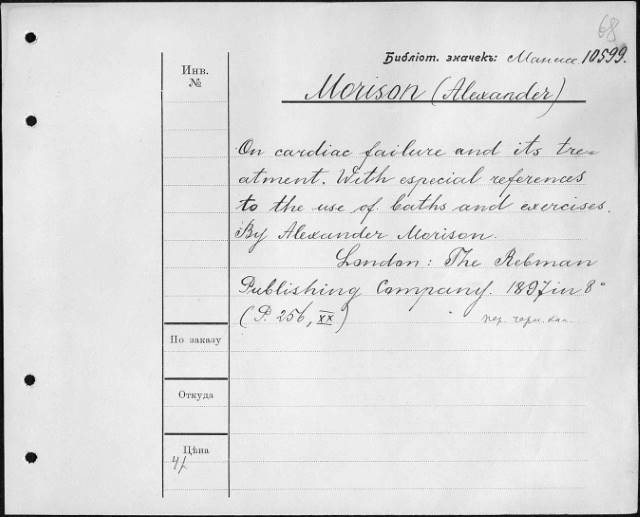 68
Библіот. значекъ: 10599.
Инв.
№
Morison (Alexander)
On cardiac failure and its tre-
atment. With especial references
to the use of baths and exercises.
By Alexander Morison.
London: The Rebman
Publishing Company. 1897 in 8°
(P. 256, XX)
По заказу
Откуда
Цѣна